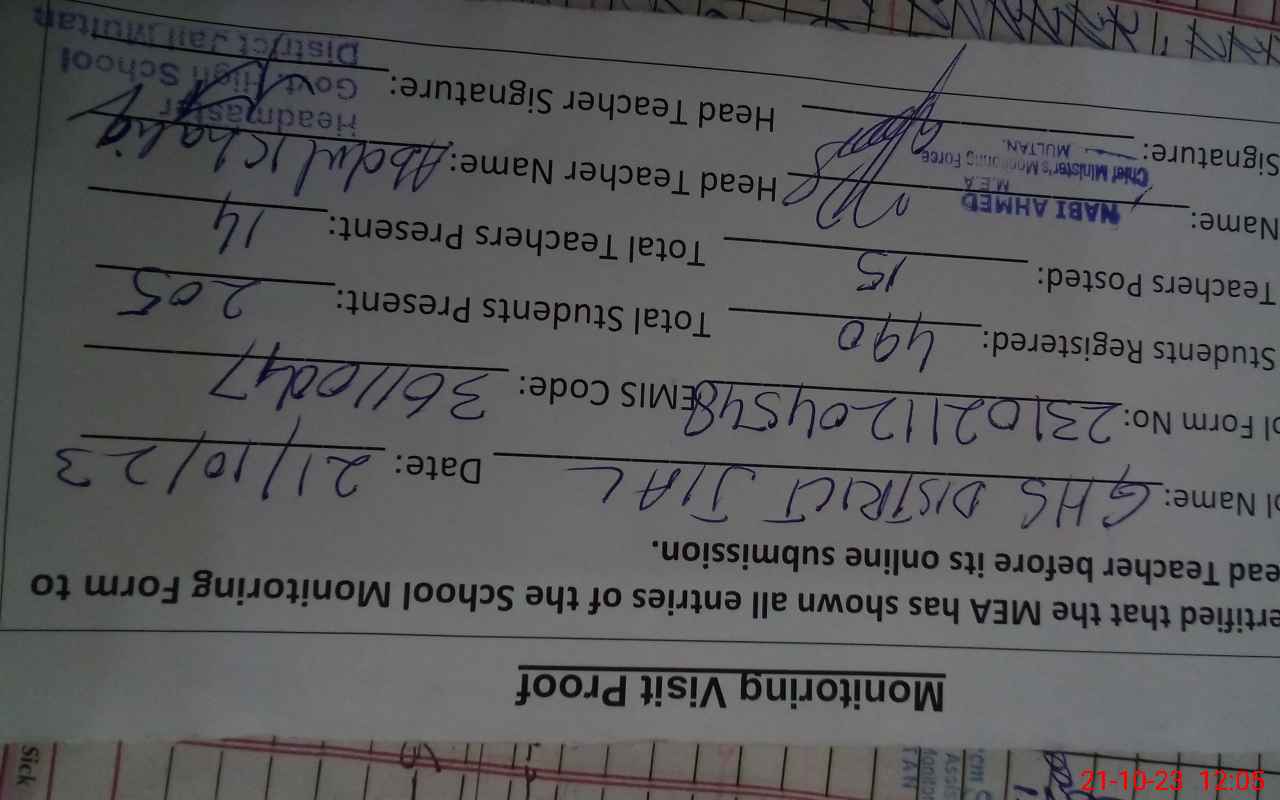 Monitoring Visit Proof
ertified that the MEA has shown all entries of the School Monitoring Form to
ead Teacher before its online submission.
ol Name: GHS DISTRICT JIAL Date: 21/10/23
ol Form No: 231021120 45 EMIS Code: 36110047
Students Registered: 490 Total Students Present: 205
Teachers Posted: 15 Total Teachers Present: 14
Name: NABI AHMED Head Teacher Name: Abdul Khaliq
M E A
Chief Minister's Monitoring Force
MULTAN.
Signature: Head Teacher Signature:
Headmaster
Govt. High School
District Jail Multan
Sick
21-10-23 12:05